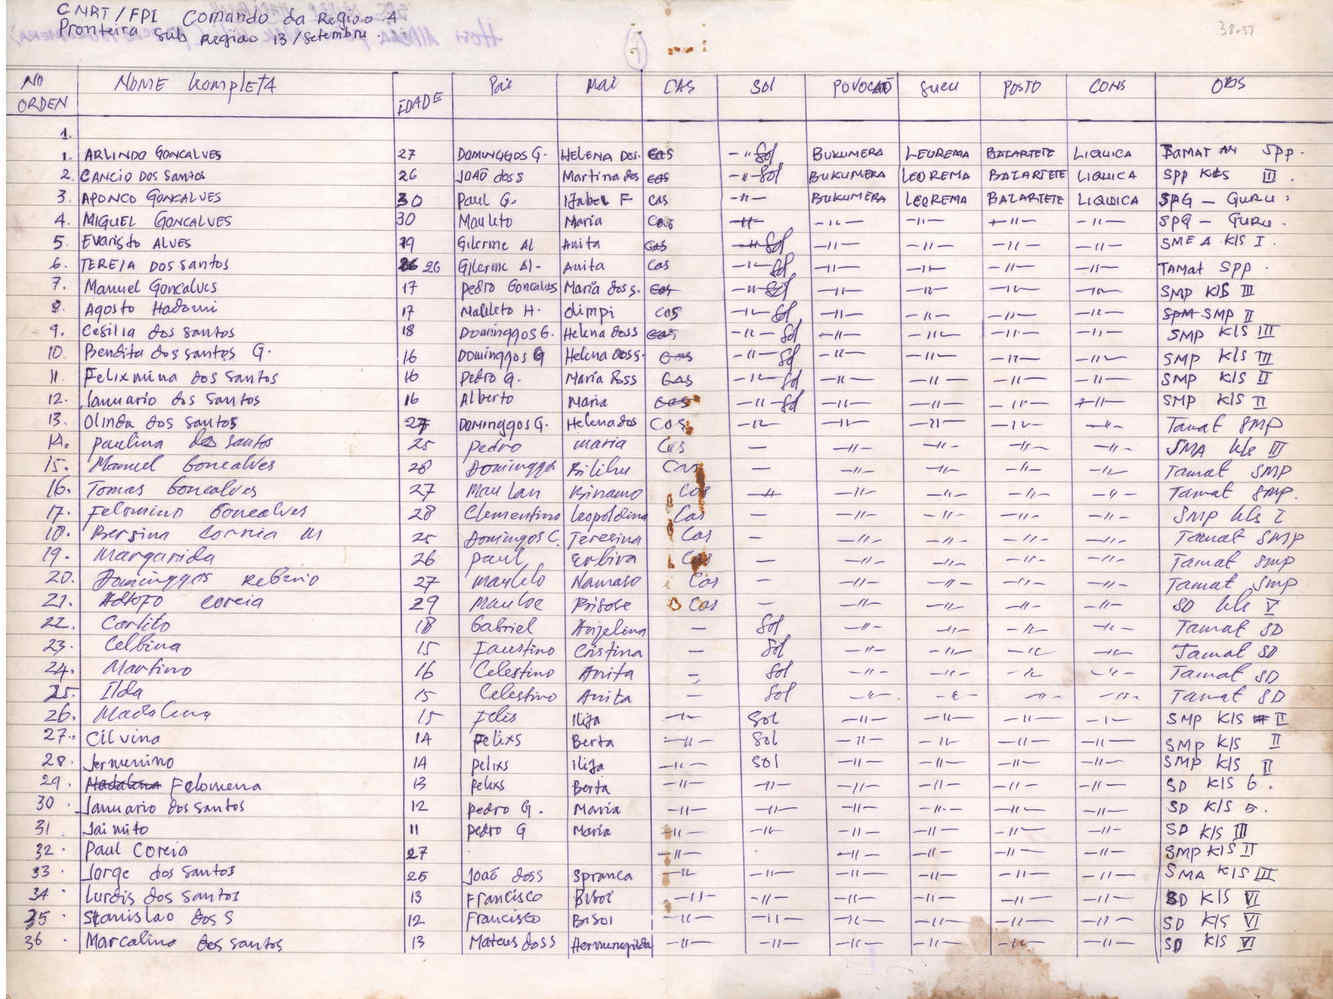 CNRT/FPI Comando da Região 4
Fronteira Sub Região 13/Setembru
38.57
NO ORDEN NOME KompletA IDADE Pai Mai CAS Sol POVOCAÕ Sucu POSTO CONS OBS
1.
1. ARLINDO GONCALVES 27 DOMINGGOS G. HELENA DOS. Cas -"- Sol BUKUMERA LEOREMA BAZARTETE LIQUICA TAMAT SPP.
2. CANCIO DOS SANTOS 26 JOAÕ dos S Martina dos cas -"- Sol BUKUMERA LEOREMA BAZARTETE LIQUICA SPP KLS III.
3. APONCO GONCALVES 30 Paul G. IZabel F cas -"- BUKUMERA LEOREMA BAZARTETE LIQUICA SPG - GURU.
4. MIGUEL GONCALVES 30 Mauleto Maria Cas -"- -"- -"- -"- -"- SPG - Guru.
5. Evaristo ALVES 19 Gilerme Al Anita Cas -"- Sol -"- -"- -"- -"- SMEA KlS I.
6. TEREJA DOS SANTOS 26 Gilerme Al- Anita Cas -"- Sol -"- -"- -"- -"- TAMAT SPP.
7. Manuel Goncalves 17 Pedro Goncalves Maria dos s. Cas -"- Sol -"- -"- -"- -"- SMP KlS III
8. Agosto Hadomi 17 Malleto H. olimpi cas -"- Sol -"- -"- -"- -"- SPM SMP II
9. Cesilia dos santos 18 Dominggos G. Helena dos s Cas -"- Sol -"- -"- -"- -"- SMP KlS III
10. Bendita dos santos G. 16 Dominggos G Helena dos s. Cas -"- Sol -"- -"- -"- -"- SMP KlS III
11. Felixmina dos Santos 16 Pedro G. Maria Ross Cas -"- Sol -"- -"- -"- -"- SMP KlS II
12. Januario dos Santos 16 Alberto Maria Cas -"- Sol -"- -"- -"- -"- SMP KlS II
13. Olinda dos Santos 27 DOMINGGOS G. Helena dos Cas -"- -"- -"- -"- -"- Tamat SMP
14. paulina de santos 25 pedro maria Cas — -"- -"- -"- -"- SMA kls III
15. Manuel Goncalves 26 Dominggos Bilihu Cas — -"- -"- -"- -"- Tamat SMP
16. Tomas Goncalves 27 Mau Lau Binamo Cas -"- -"- -"- -"- -"- Tamat SMP.
17. Felomino Goncalves 28 Clementino leopoldina Cas — -"- -"- -"- -"- SMP kls I
18. Bersina Correia M 25 Domingos C. Teresina Cas — -"- -"- -"- -"- Tamat SMP
19. Margarida 26 Paul Cas — -"- -"- -"- -"- Tamat SMP
20. Dominggos Reberio 27 Mauleto Namaso Cas — -"- -"- -"- -"- Tamat SMP
21. Adolfo coreia 29 Mauloe Bisose Cas — -"- -"- -"- -"- SD kls V
22. Carlito 18 Gabriel Anjelina — Sol -"- -"- -"- -"- Tamat SD
23. Celbina 15 Faustino Cristina — Sol -"- -"- -"- -"- Tamat SD
24. Martino 16 Celestino Anita — Sol -"- -"- -"- -"- Tamat SD
25. Ilda 15 Celestino Anita — Sol -"- -"- -"- -"- Tamat SD
26. Madalena 15 Felis Iliza -"- Sol -"- -"- -"- -"- SMP KlS II
27. Cilvina 14 Felixs Berta -"- Sol -"- -"- -"- -"- SMP KlS II
28. Jermenino 14 pelixs Iliza -"- Sol -"- -"- -"- -"- SMP KlS II
29. Madalena Felomena 13 pelixs Berta -"- -"- -"- -"- -"- -"- SD KlS 6.
30. Januario dos santos 12 pedro G. Maria -"- -"- -"- -"- -"- -"- SD KlS 5.
31 Jaimito 11 pedro G Maria -"- -"- -"- -"- -"- -"- SD KlS III
32. Paul Coreia 27 -"- -"- -"- -"- -"- SMP KlS II
33. Jorge dos santos 25 João dos s Spranca -"- -"- -"- -"- -"- -"- SMA KlS III
34. Lurdis dos Santos 13 Francisco BiSol -"- -"- -"- -"- -"- -"- SD KlS VI
35. Stanislao dos S 12 Francisco BiSol -"- -"- -"- -"- -"- -"- SD KlS VI
36. Marcalina dos santos 13 Mateus dos s Hermenegilda -"- -"- -"- -"- -"- -"- SD KlS VI